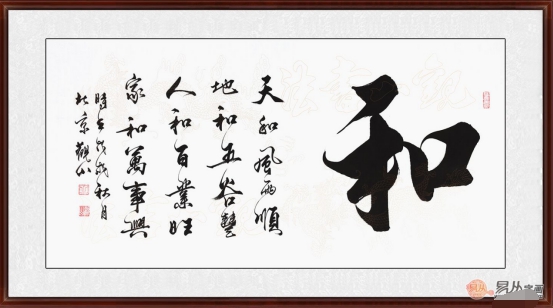 和
天和風雨順
地和五谷豐
人和百業旺
家和萬事興
時在戊戌秋月
於京觀山
易从字画